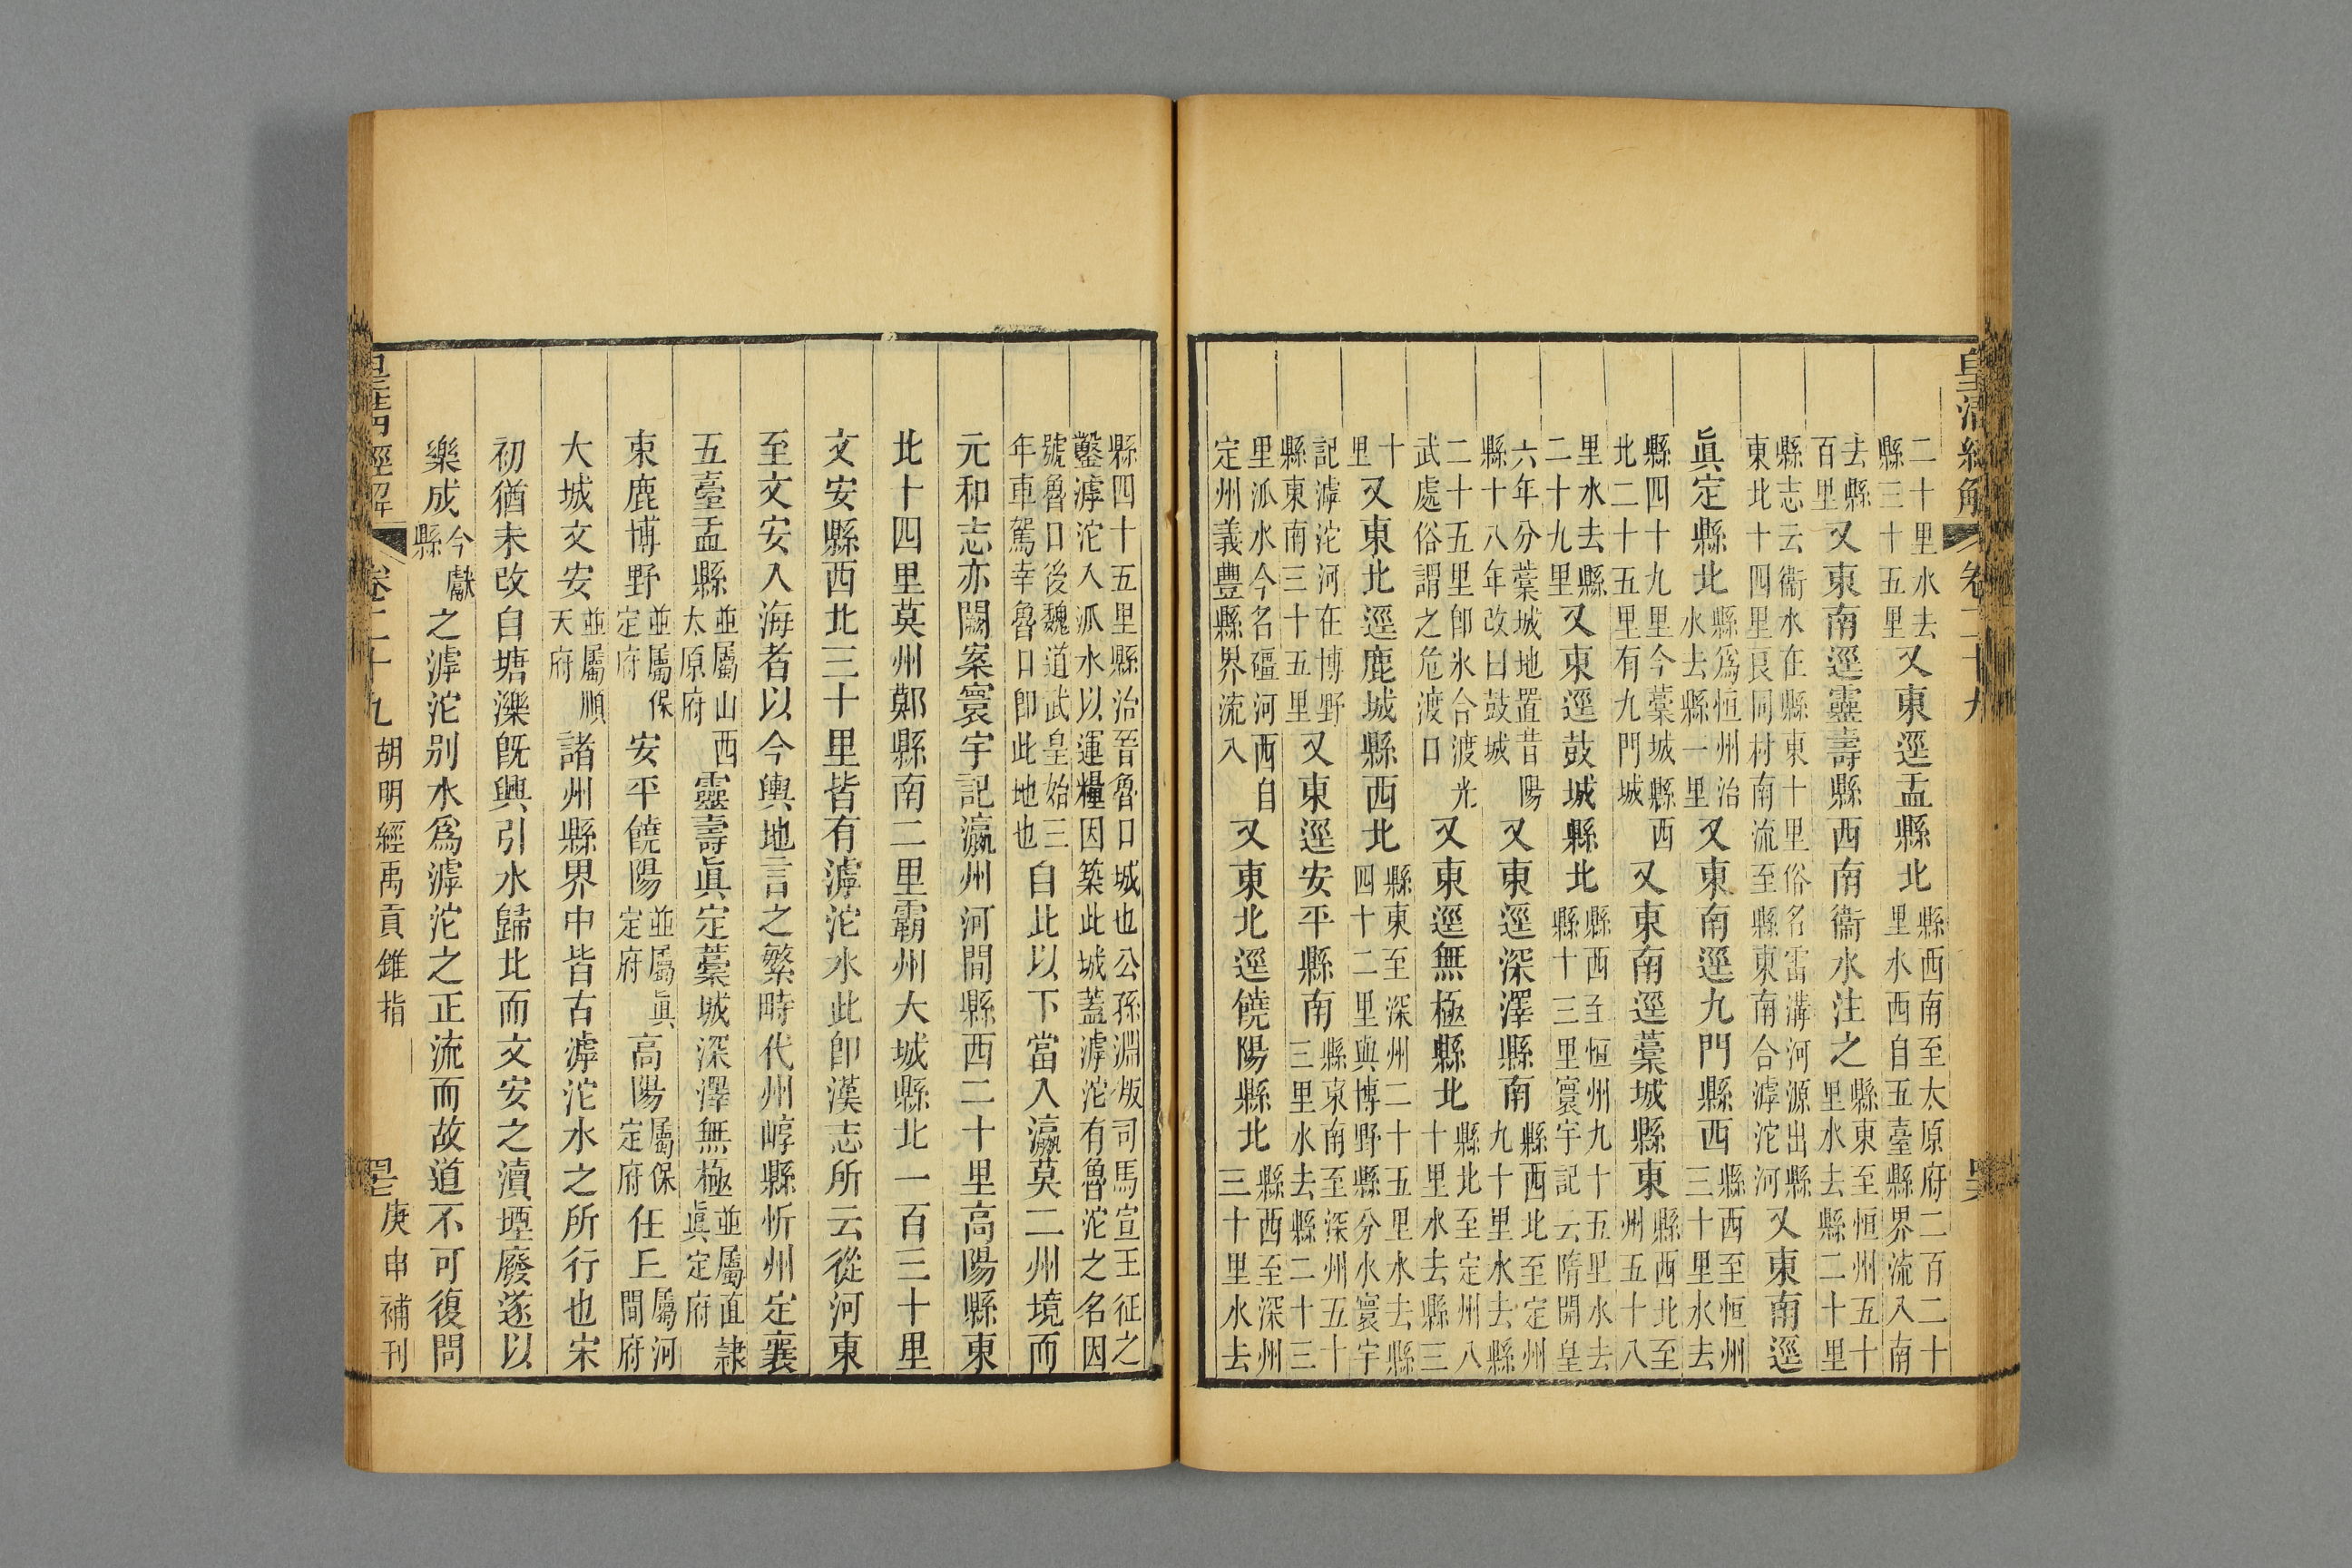 皇清經解 卷二十九
二十里水去縣三十五里又東逕盂縣北縣西南至太原府二百二十里水西自五臺縣界流入南
去縣百里又東南逕靈壽縣西南衞水注之縣東至恒州五十里水去縣二十里
縣志云衞水在縣東十里俗名雷溝河源出縣東北十四里良同村南流至縣東南合滹沱河又東南逕
眞定縣北縣爲恒州治水去縣一里又東南逕九門縣西縣西至恒州三十里水去
縣四十九里今藁城縣西北二十五里有九門城又東南逕藁城縣東縣西北至州五十八
里水去縣二十九里又東逕鼓城縣北縣西至恒州九十五里水去縣十三里寰宇記云隋開皇
六年分藁城地置昔陽縣十八年改曰鼓城又東逕深澤縣南縣西北至定州九十里水去縣
二十五里卽氷合渡光武處俗謂之危渡口又東逕無極縣北縣北至定州八十里水去縣三
十里又東北逕鹿城縣西北縣東至深州二十五里水去縣四十二里與博野縣分水寰宇
記滹沱河在博野縣東南三十五里又東逕安平縣南縣東南至深州五十三里水去縣二十三
里泒水今名礓河西自定州義豊縣界流入又東北逕饒陽縣北縣西至深州三十里水去
縣四十五里縣治晉魯口城也公孫淵叛司馬宣王征之鑿滹沱入泒水以運糧因築此城蓋滹沱有魯沱之名因
號魯口後魏道武皇始三年車駕幸魯口卽此地也自此以下當入瀛莫二州境而
元和志亦闕案寰宇記瀛州河間縣西二十里高陽縣東
北十四里莫州鄚縣南二里霸州大城縣北一百三十里
文安縣西北三十里皆有滹沱水此卽漢志所云從河東
至文安入海者以今輿地言之繁畤代州崞縣忻州定襄
五臺盂縣並屬山西太原府靈壽眞定藁城深澤無極並屬直隸眞定府
束鹿博野並屬保定府安平饒陽並屬眞定府高陽屬保定府任上屬河間府
大城文安並屬順天府諸州縣界中皆古滹沱水之所行也宋
初猶未改自塘濼旣興引水歸北而文安之瀆堙廢遂以
樂成今獻縣之滹沱别水爲滹沱之正流而故道不可復問
皇清經解 卷二十九 胡明經禹貢錐指 庚申補刊